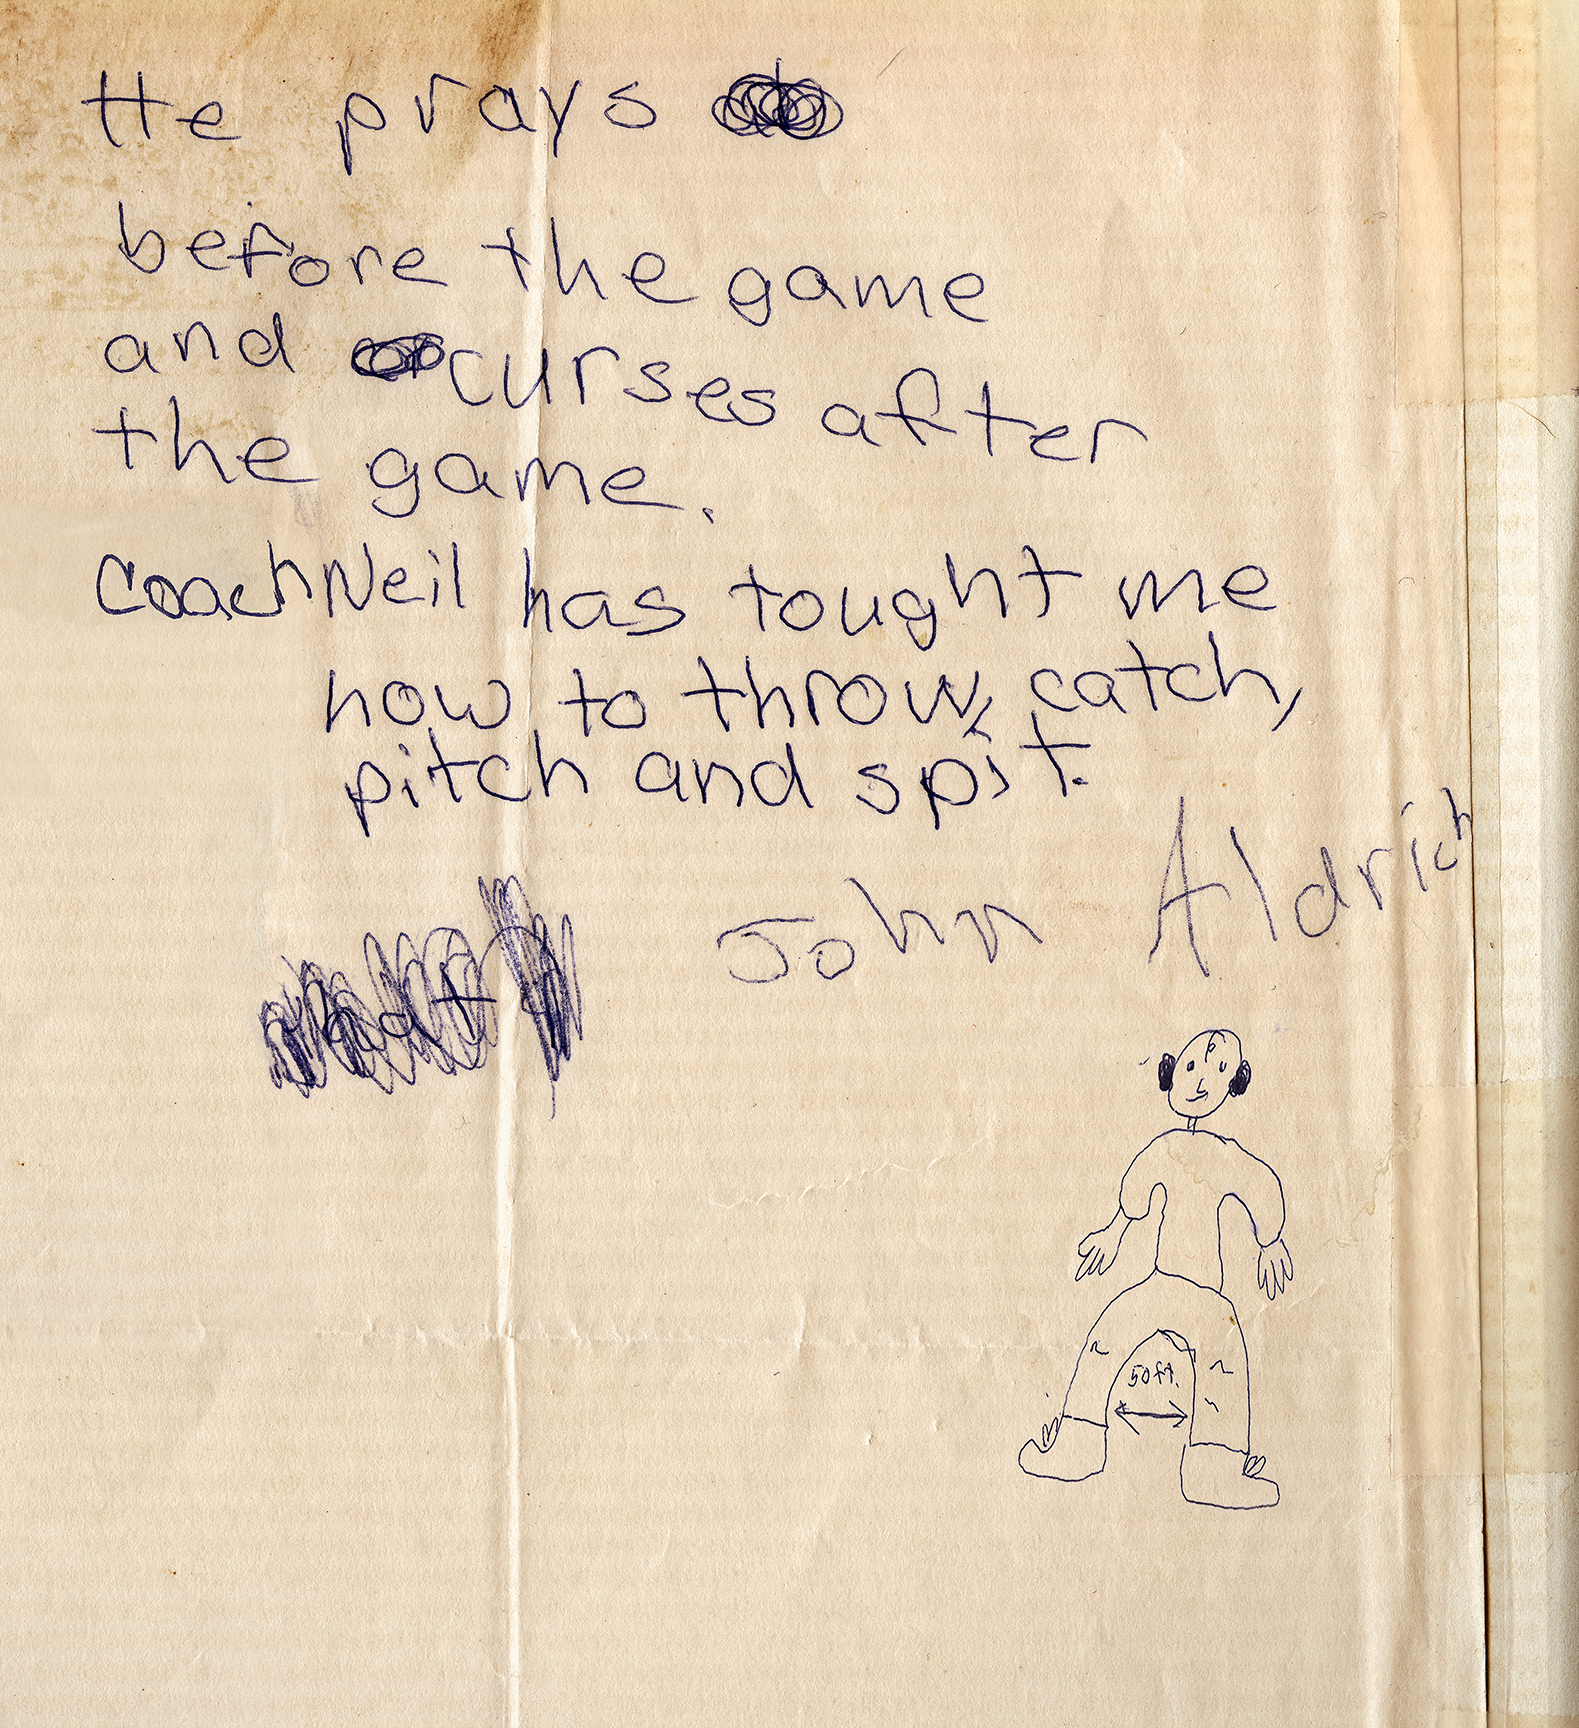 He prays
before the game
and curses after
the game.
Coach Neil has tought me
how to throw, catch,
pitch and spit.
John Aldrich
50 ft.